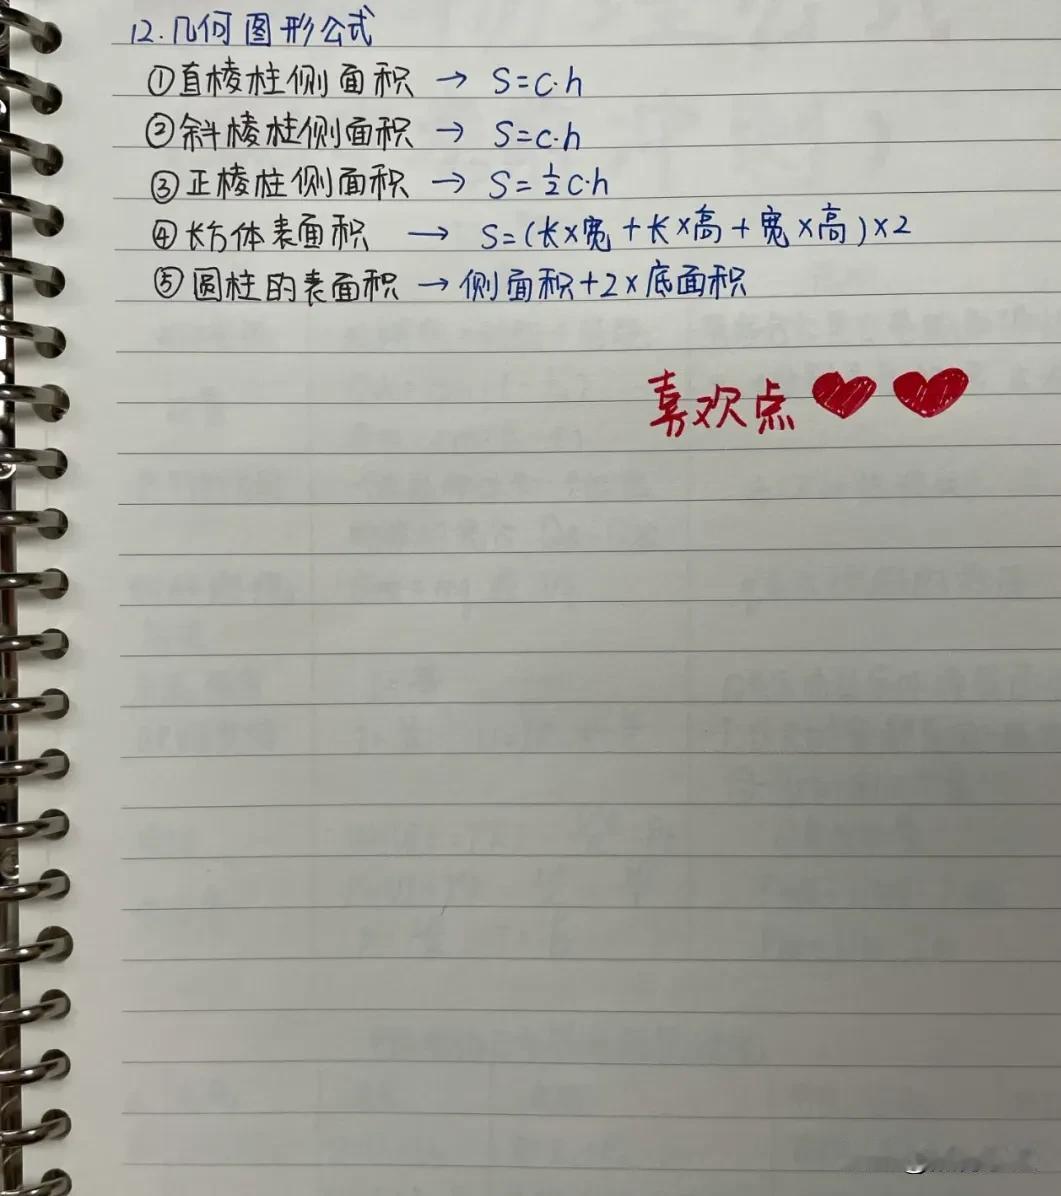 12.几何图形公式
①直棱柱侧面积 → S=c·h
②斜棱柱侧面积 → S=c·h
③正棱柱侧面积 → S=½c·h
④长方体表面积 → S=(长×宽+长×高+宽×高)×2
⑤圆柱的表面积 → 侧面积+2×底面积
喜欢点